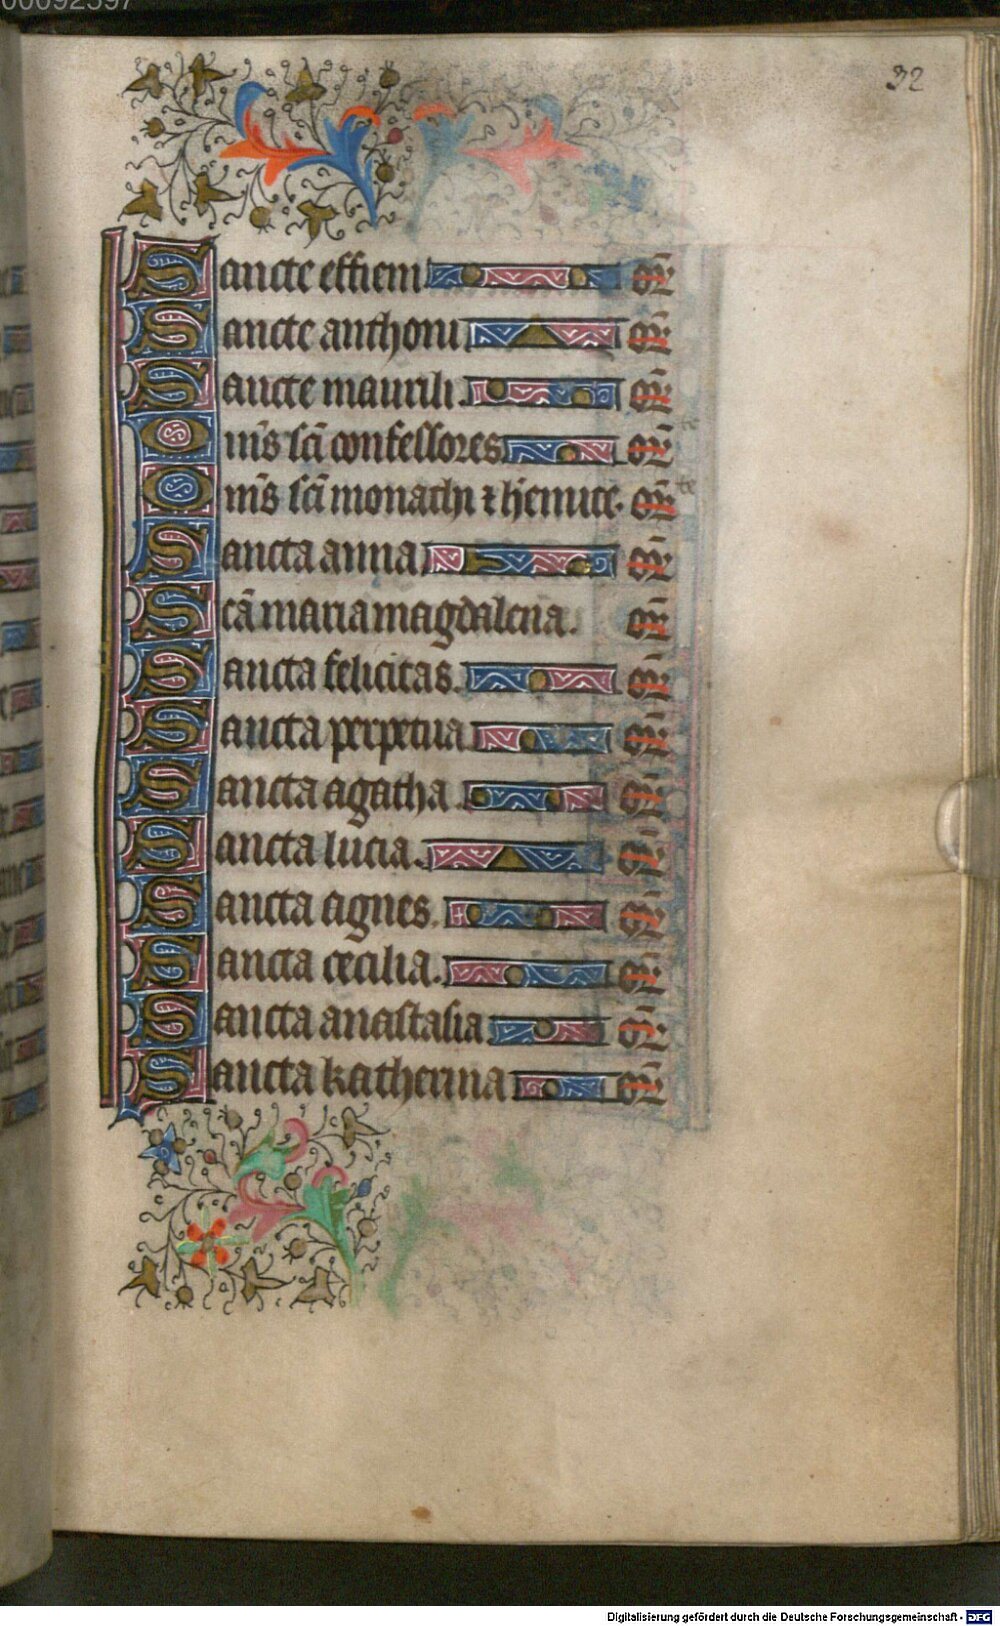 00092597
32
Sancte effiem or̄
Sancte anthoni or̄
Sancte maurili. or̄
Om̄s sc̄i confessores or̄
Om̄s sc̄i monachi ⁊ h̄emite. or̄
Sancta anna or̄
Sc̄a maria magdalena. or̄
Sancta felicitas. or̄
Sancta perpetua or̄
Sancta agatha or̄
Sancta lucia. or̄
Sancta agnes. or̄
Sancta cecilia. or̄
Sancta anastasia or̄
Sancta katherina or̄
Digitalisierung gefördert durch die Deutsche Forschungsgemeinschaft - DFG